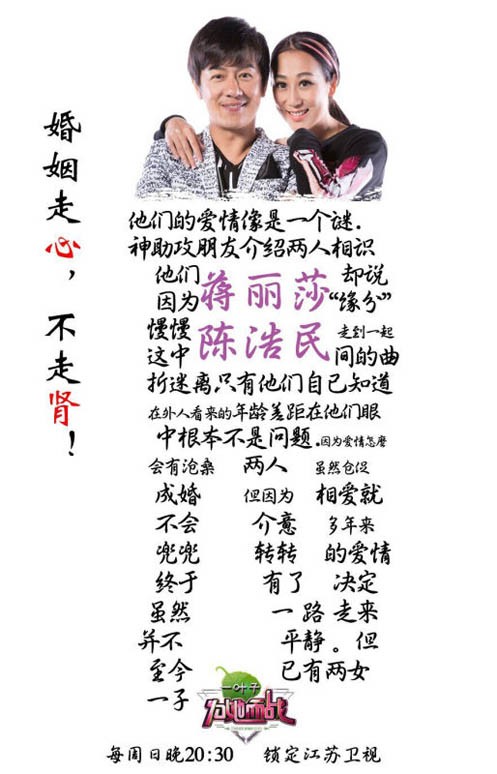 婚姻走心，不走肾！
他们的爱情像是一个谜.
神助攻朋友介绍两人相识
他们 蒋丽莎 却说
因为 “缘分”
慢慢 陈浩民 走到一起
这中 间的曲
折迷离只有他们自已知道
在外人看来的年龄差距在他们眼
中根本不是问题.因为爱情怎麽
会有沧桑 两人 虽然仓促
成婚 但因为 相爱就
不会 介意 多年来
兜兜 转转 的爱情
终于 有了 决定
虽然 一路 走来
并不 平静。但
至今 已有两女
一子
一叶子
为她而战
每周日晚20:30 锁定江苏卫视